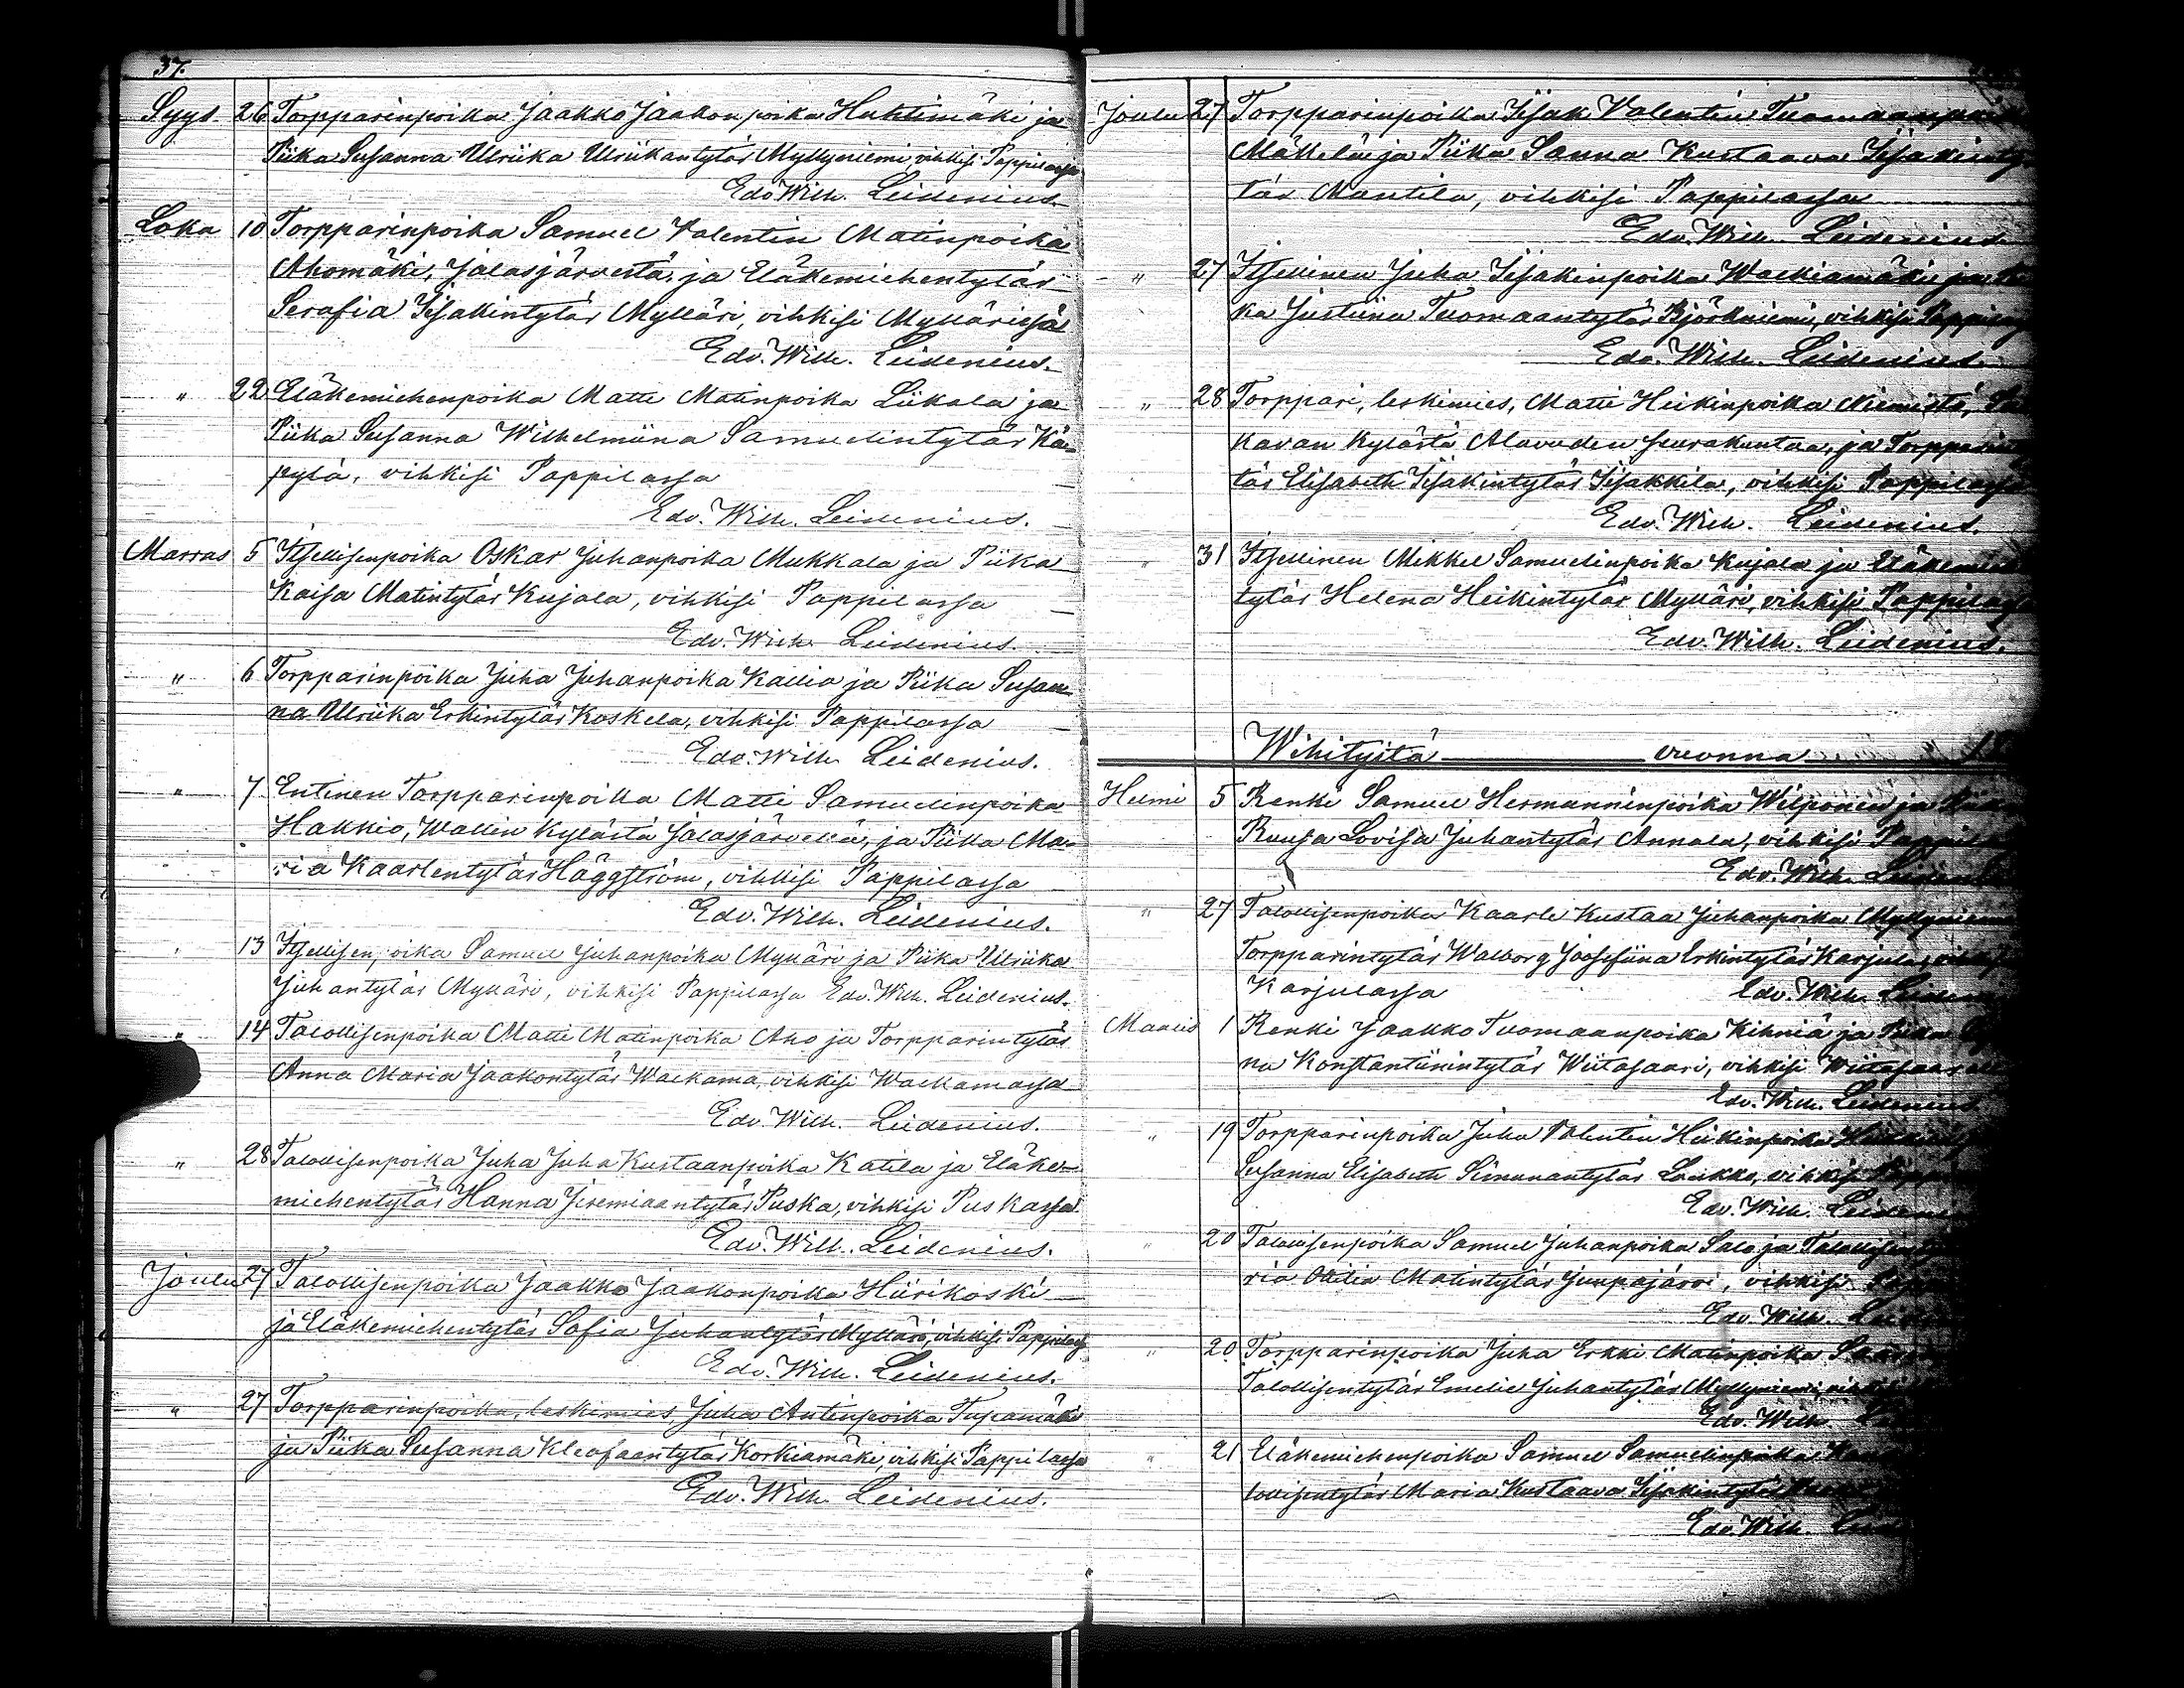 37.
Syys 26 Torpparinpoika Jaakko Jaakonpoika Huhtimäki ja
Piika Susanna Ulriika Ulriikantytär Myllyniemi vihkisi Pappilassa
Edv Wilh. Leidenius.
Loka 10 Torpparinpoika Samuel Valentin Matinpoika
Ahomäki, Jalasjärvestä, ja Eläkemiehentytär
Serafia Iisakintytär Mylläri, vihkisi Myllärissä
Edv. Wilh. Leidenius.
" 22 Eläkemiehenpoika Matti Matinpoika Liikala ja
Piika Susanna Wilhelmiina Samuelintytär Kä-
pylä, vihkisi Pappilassa
Edv. Wilh. Leidenius.
Marras 5 Itsellisenpoika Oskar Juhanpoika Mukkala ja Piika
Kaisa Matintytär Kujala, vihkisi Pappilassa
Edv. Wilh. Leidenius.
" 6 Torpparinpoika Juha Juhanpoika Kallio ja Piika Susan-
na Ulriika Erkintytär Koskela, vihkisi Pappilassa
Edv. Wilh. Leidenius.
" 7 Entinen Torpparinpoika Matti Samuelinpoika
Hakkio, Wallin kylästä Jalasjärvellä, ja Piika Ma-
ria Kaarlentytär Häggström, vihkisi Pappilassa
Edv. Wilh. Leidenius.
" 13 Itsellisenpoika Samuel Juhanpoika Mylläri ja Piika Ulriika
Juhantytär Mylläri, vihkisi Pappilassa Edv. Wilh. Leidenius.
" 14 Talollisenpoika Matti Matinpoika Aho ja Torpparintytär
Anna Maria Jaakontytär Waekama, vihkisi Waekamassa
Edv Wilh. Leidenius.
" 28 Talollisenpoika Juha Juha Kustaanpoika Katila ja Eläke-
miehentytär Hanna Jeremiaantytär Puska, vihkisi Puskassa
Edv. Wilh. Leidenius.
Joulu 27 Talollisenpoika Jaakko Jaakonpoika Hiirikoski
ja Eläkemiehentytär Sofia Juhantytär Mylläri, vihkisi Pappilass
Edv. Wilh. Leidenius.
" 27 Torpparinpoika, leskimies, Juha Antinpoika Tupamäki
ja Piika Susanna Kleofaantytär Korkiamäki, vihkisi Pappilassa
Edv. Wilh. Leidenius.
Joulu 27 Torpparinpoika Iisak Valentin Tuomaanpoika
Mäkelä ja Piika Sanna Kustaava Iisakinty
tär Mantila, vihkisi Pappilassa
Edv. Wilh. Leidenius.
" 27 Itsellinen Juha Iisakinpoika Waekiamäki ja
ka Justiina Tuomaantytär Björkniemi, vihkisi
Edv. Wilh. Leidenius.
" 28 Torppari, leskimies, Matti Heikinpoika Niemistö,
kavan kylästä Alavuden seurakuntaa, ja
tär Elisabeth Iisakintytär Iisakkila, vihkisi Pappilassa
Edv. Wilh. Leidenius.
" 31 Itsellinen Mikkel Samuelinpoika Kujala ja
tytär Helena Heikintytär Mylläri, vihkisi
Edv. Wilh. Leidenius.
Wihityistä vuonna
Helmi 5 Renki Samuel Hermanninpoika Wilponen ja
Ruusa Lovisa Juhantytär Annala, vihkisi
Edv. Wilh.
" 27 Talollisenpoika Kaarle Kustaa Juhanpoika
Torpparintytär Walborg Joosefiina Erkintytär Karjula,
Karjulassa Edv. Wilh.
Maalis 1 Renki Jaakko Tuomaanpoika Kihniä ja Piika
na Konstantiinintytär Wiitasaari, vihkisi
Edv. Wilh. Leidenius
" 19 Torpparinpoika Juha Valentin Heikinpoika
Susanna Elisabeth Simunantytär Luukko, vihkisi
Edv. Wilh.
" 20 Talollisenpoika Samuel Juhanpoika Salo ja
ria Otilia Matintytär Juupajärvi, vihkisi
Edv. Wilh.
" 20 Torpparinpoika Juha Erkki Matinpoika
Talollisentytär Emelie Juhantytär Myllyniemi,
Edv. Wilh
" 21 Eläkemiehenpoika Samuel Samuelinpoika
lollisentytär Maria Kustaava Iisakintytär
Edv. Wilh.